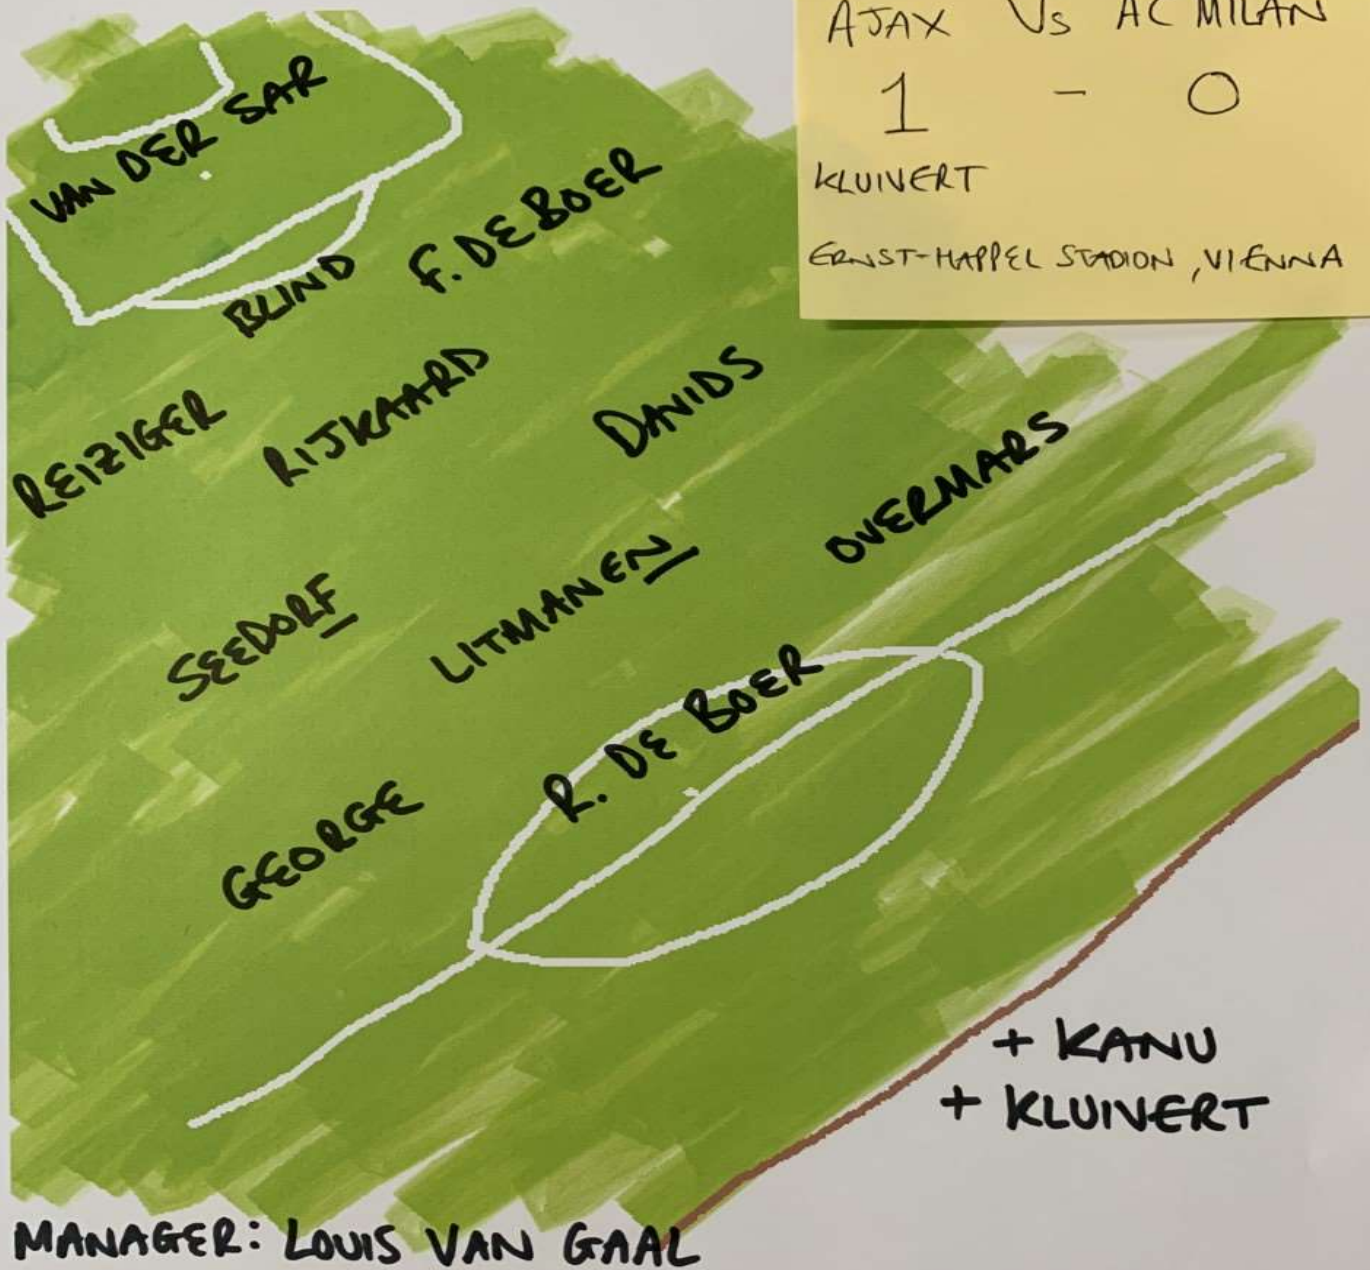 AJAX Vs AC MILAN
1 - 0
KLUIVERT
ERNST-HAPPEL STADION, VIENNA
VAN DER SAR
BLIND
F. DE BOER
REIZIGER
RIJKAARD
DAVIDS
SEEDORF
LITMANEN
OVERMARS
GEORGE
R. DE BOER
+ KANU
+ KLUIVERT
MANAGER: LOUIS VAN GAAL